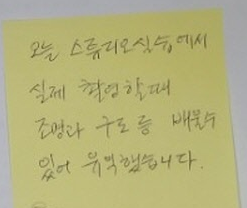 오늘 스튜디오실습에서
실제 촬영할때
조명과 구도 등 배울수
있어 유익했습니다.